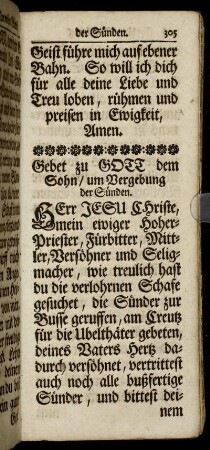 der Sünden. 305
Geist führe mich auf ebener
Bahn. So will ich dich
für alle deine Liebe und
Treu loben, rühmen und
preisen in Ewigkeit,
Amen.
Gebet zu GOTT dem
Sohn/ um Vergebung
der Sünden.
HErr JESU CHriste,
mein ewiger Hoher-
Priester, Fürbitter, Mitt-
ler, Versöhner und Selig-
macher, wie treulich hast
du die verlohrnen Schafe
gesuchet, die Sünder zur
Busse geruffen, am Creutz
für die Ubelthäter gebeten,
deines Vaters Hertz da-
durch versöhnet, vertrittest
auch noch alle bußfertige
Sünder, und bittest dei-
nem